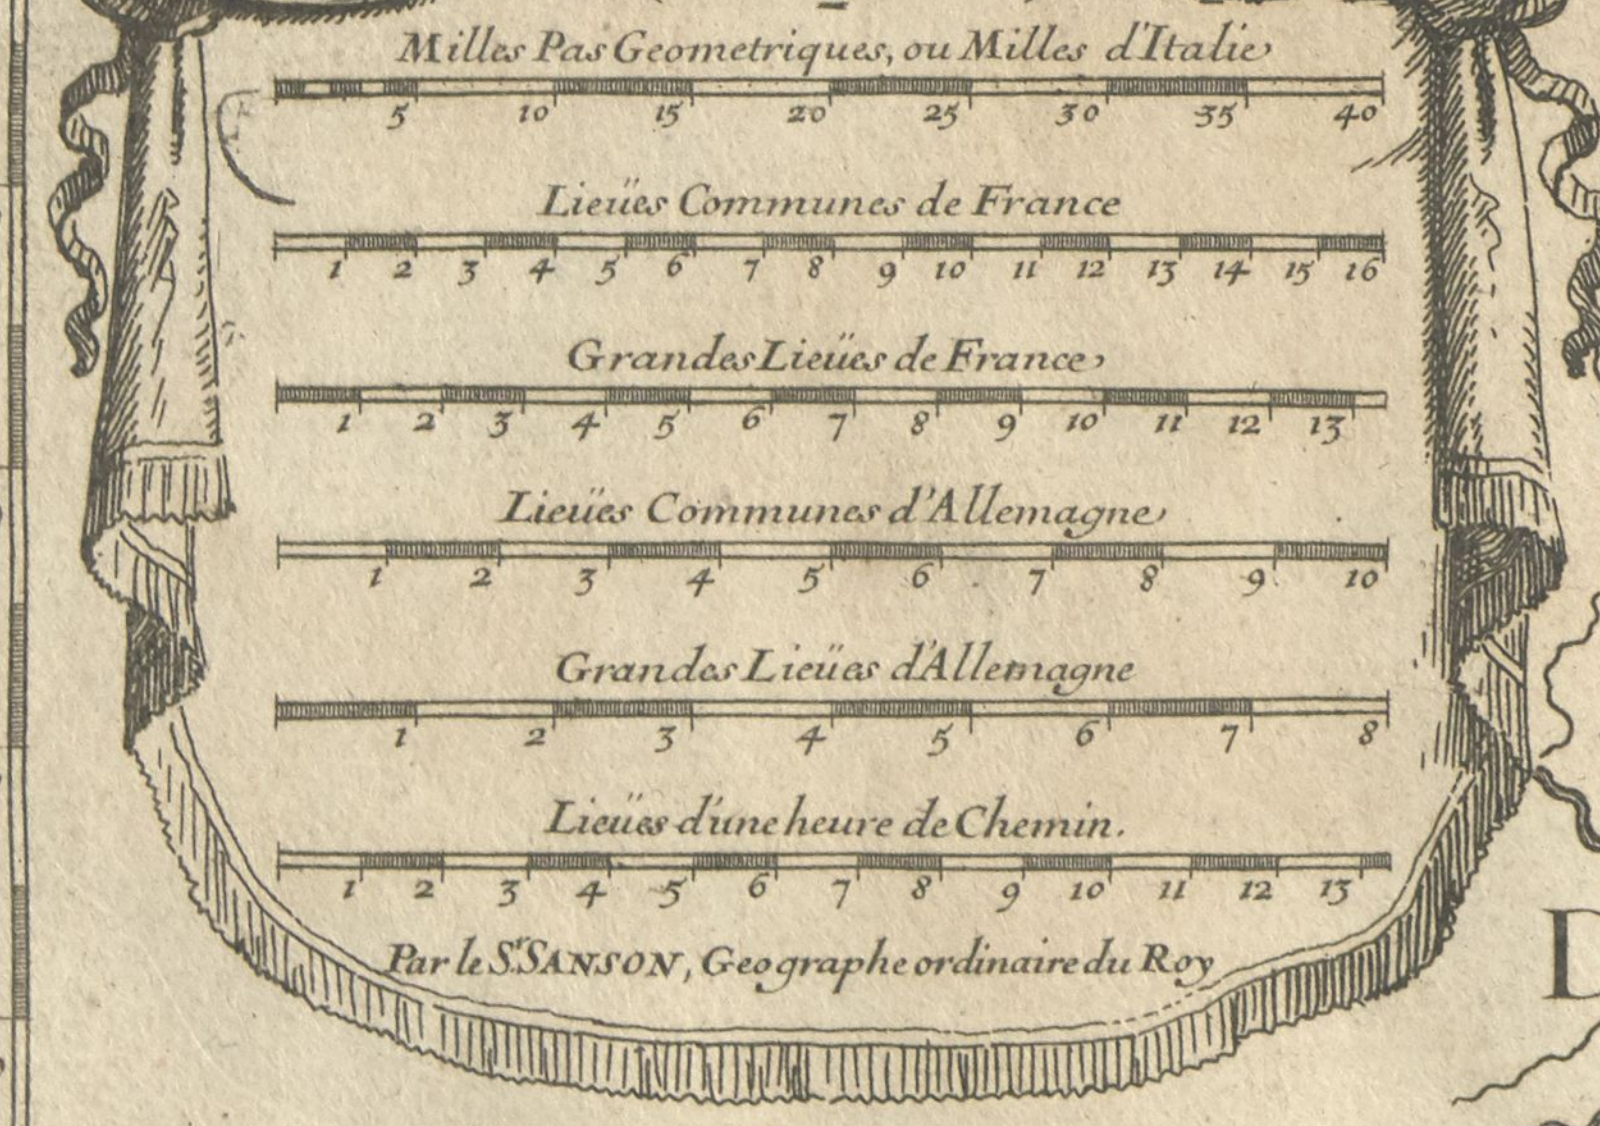 Milles Pas Geometriques, ou Milles d'Italie
5 10 15 20 25 30 35 40
Lieües Communes de France
1 2 3 4 5 6 7 8 9 10 11 12 13 14 15 16
Grandes Lieües de France
1 2 3 4 5 6 7 8 9 10 11 12 13
Lieües Communes d'Allemagne
1 2 3 4 5 6 7 8 9 10
Grandes Lieües d'Allemagne
1 2 3 4 5 6 7 8
Lieües d'une heure de Chemin.
1 2 3 4 5 6 7 8 9 10 11 12 13
Par le Sr. SANSON, Geographe ordinaire du Roy